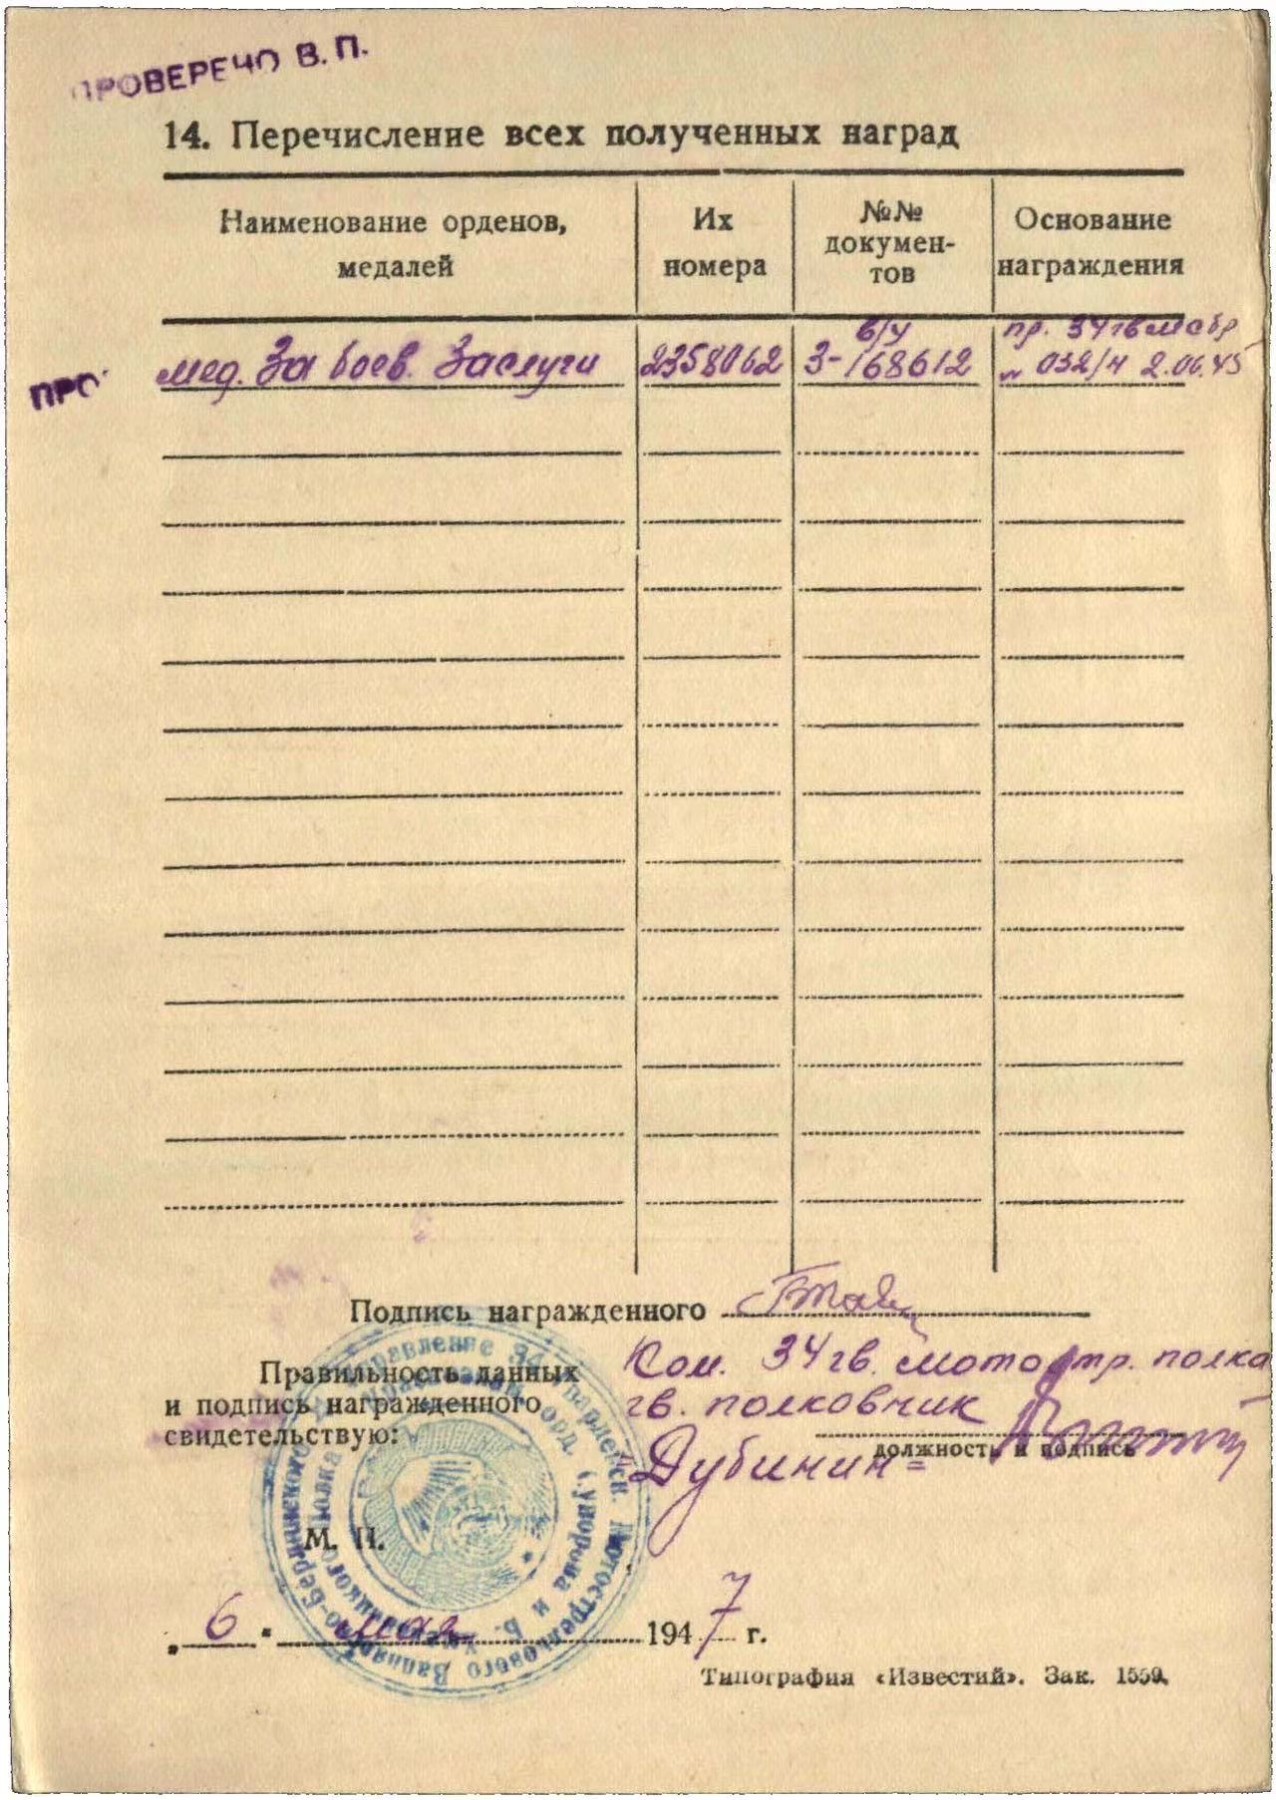 ПРОВЕРЕНО В.П.
14. Перечисление всех полученных наград
Наименование орденов, медалей
Их номера
№№ докумен-
тов
Основание награждения
ПРО
мед. За боев. Заслуги 2358062 в/у З-168612 пр. 34 гв мсбр
№ 032/н 2.06.45
Подпись награжденного
Правильность данных
и подпись награжденного
свидетельствую:
Ком. 34 гв. мотостр. полка
гв. полковник
Дубинин
должность и подпись
М. П.
„6“ мая 1947 г.
Типография «Известий». Зак. 1559.
Управление 34 Гвардейск. Мотострелкового Вапнярско-Берлинского
орд. Суворова и Б. Хмельницкого полка